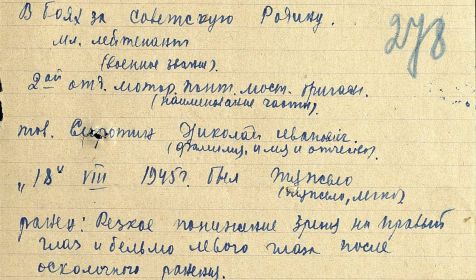 В боях за советскую Родину.
278
мл. лейтенант
(военное звание).
2ой отд. мотор. понт. мост. бригады.
(наименование части).
тов. Николай Иванович
(фамилия, имя и отчество).
"18" VIII 1945г. был тяжело
(тяжело, легко)
ранен: Резкое понижение зрения на правый
глаз и бельмо левого глаза после
осколочного ранения.